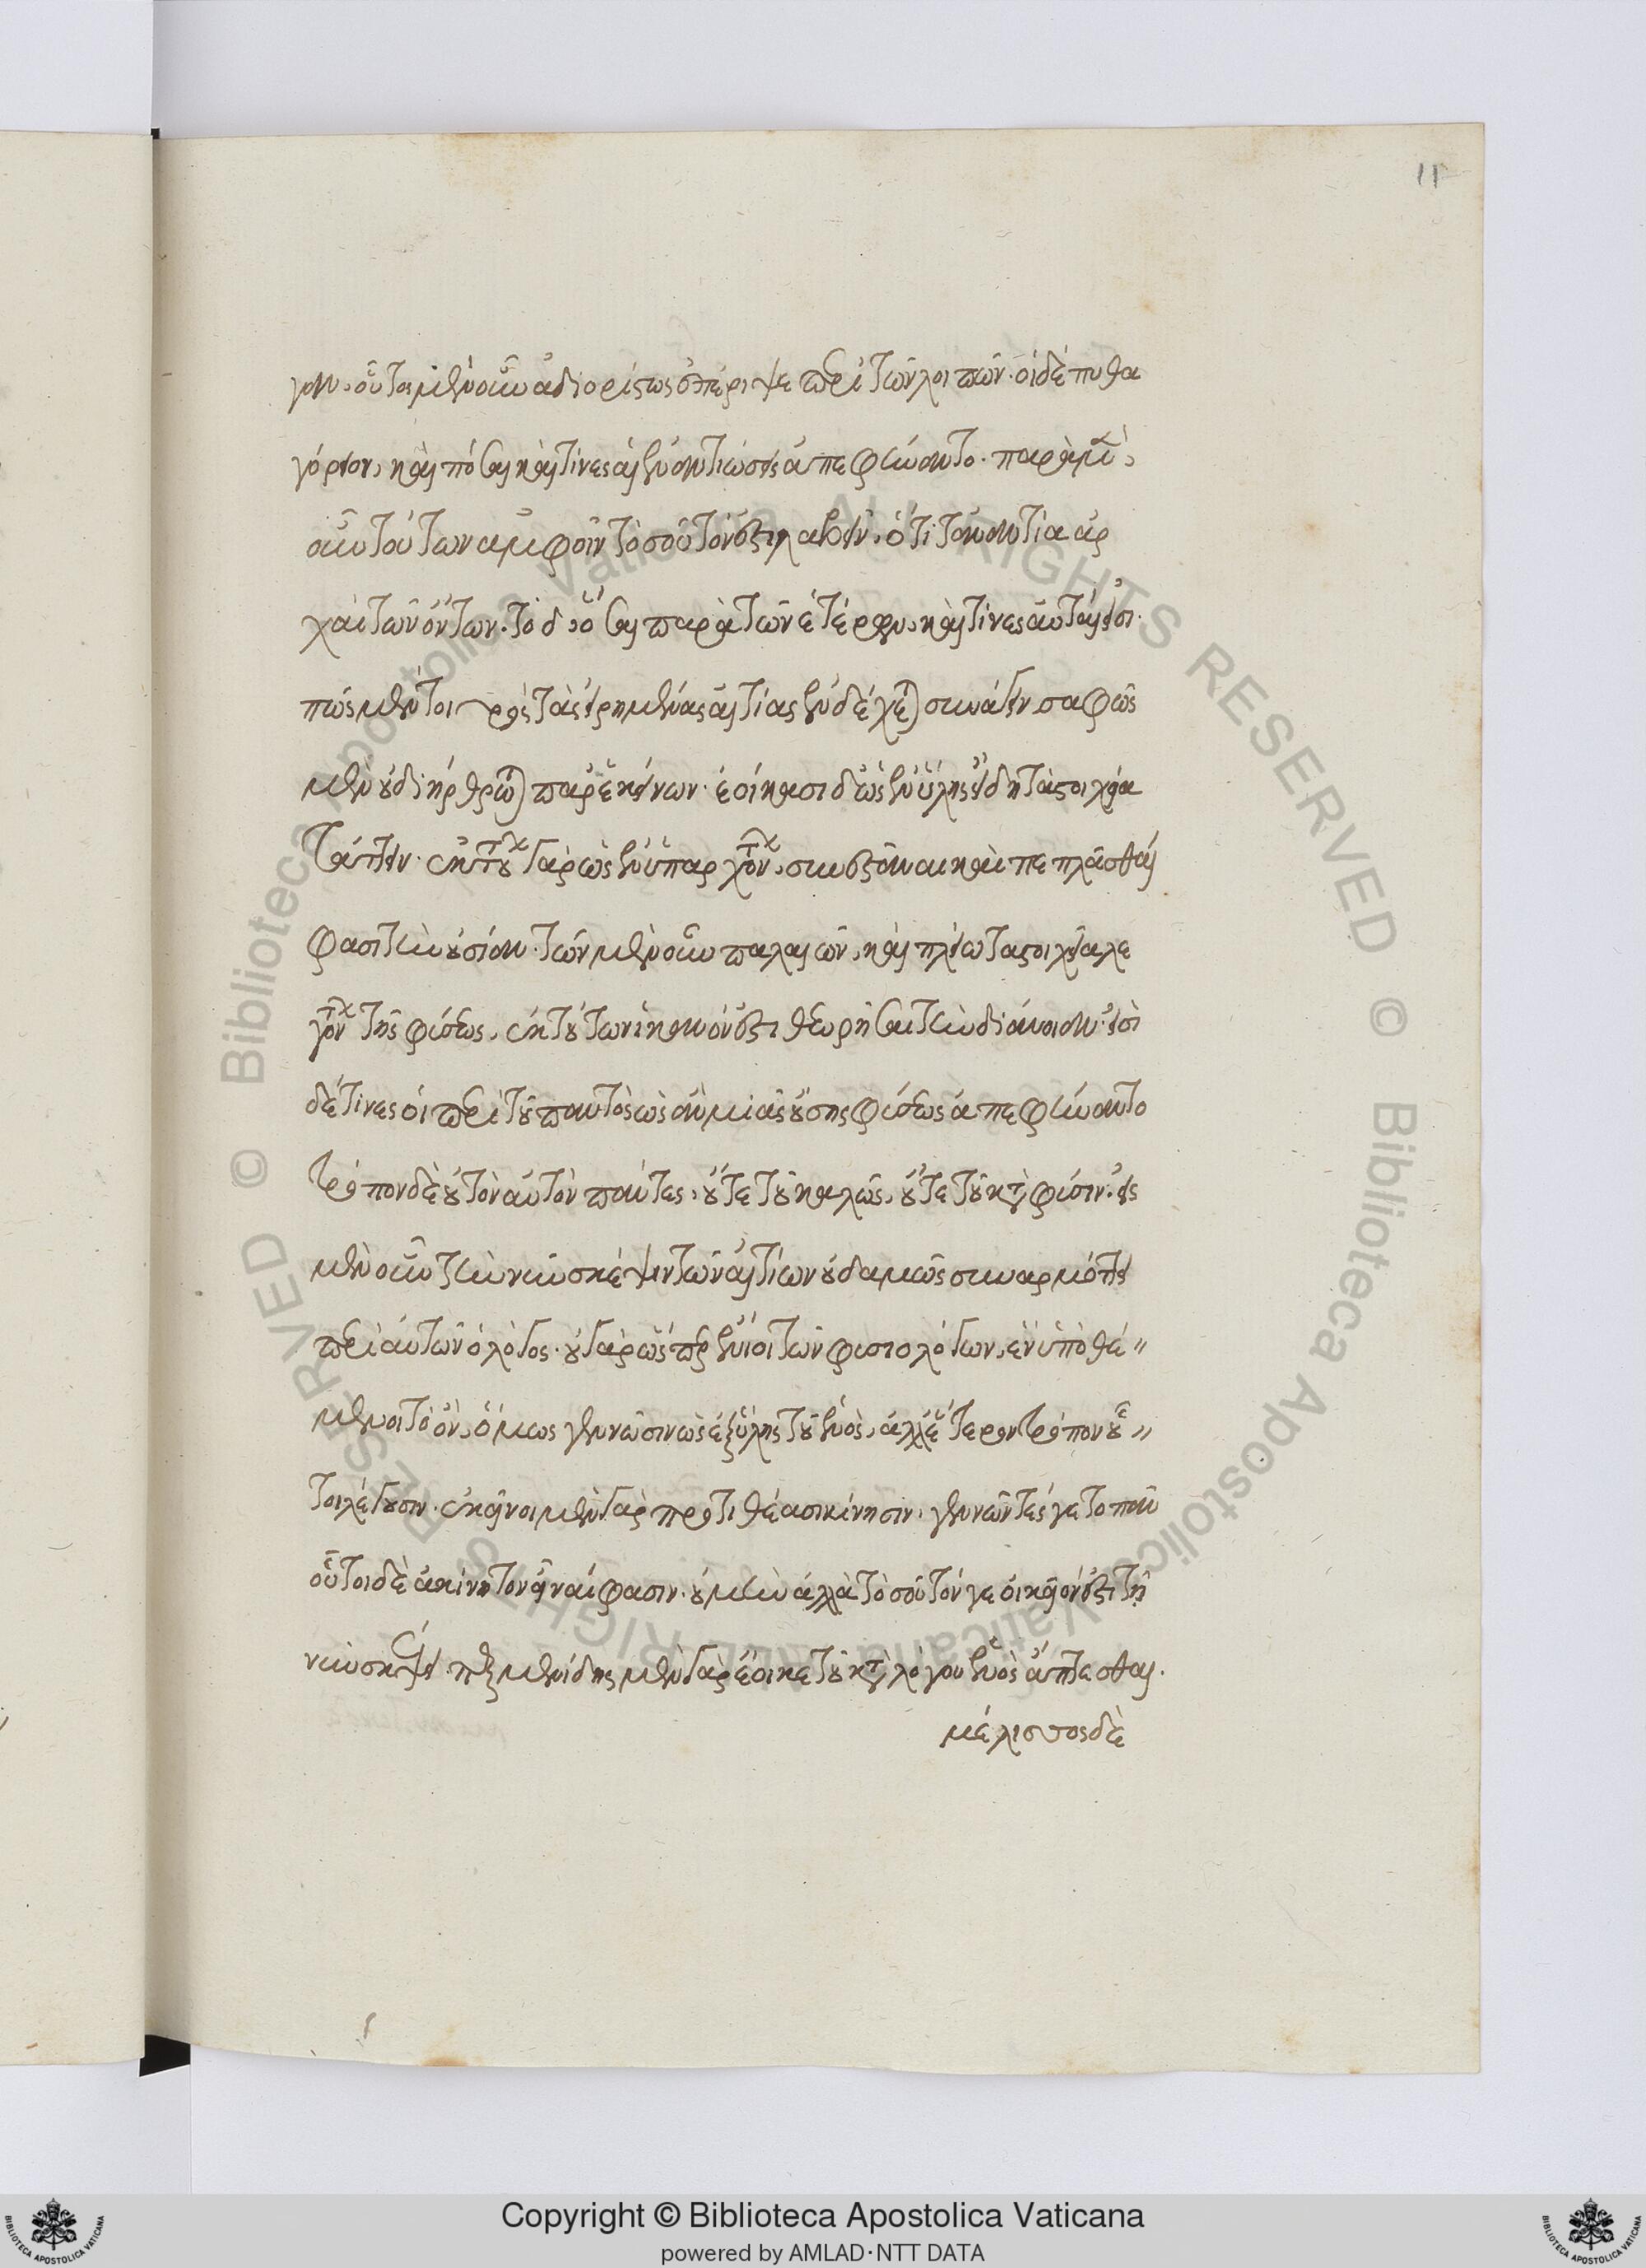 11
γον. οὗτος μὲν οὖν ἀδιορίστως ἐπέρριψε περὶ τῶν λοιπῶν. οἱ δὲ πυθα
γόρειοι, καὶ πόσαι καὶ τίνες αἱ ἐναντιώσεις ἀπεφήναντο. παρὰ μὲν
οὖν τούτων ἀμφοῖν τοσοῦτόν ἐστι λαβεῖν, ὅτι τἀναντία ἀρ
χαὶ τῶν ὄντων. τὸ δ' ὅσαι παρὰ τῶν ἑτέρων, καὶ τίνες αὗταί εἰσι.
πῶς μέντοι πρὸς τὰς εἰρημένας αἰτίας ἐνδέχεται συνάγειν σαφῶς
μὲν οὐ διήρθρωται παρ' ἐκείνων. ἐοίκασι δ' ὡς ἐν ὕλης εἴδη τὰ στοιχεῖα
τάττειν. ἐκ τούτων γὰρ ὡς ἐνυπαρχόντων, συνεστάναι καὶ πεπλάσθαι
φασὶ τὴν οὐσίαν. τῶν μὲν οὖν παλαιῶν, καὶ πλείω τὰ στοιχεῖα λε
γόντων τῆς φύσεως, ἐκ τούτων ἱκανόν ἐστι θεωρῆσαι τὴν διάνοιαν. εἰσὶ
δέ τινες οἳ περὶ τοῦ παντὸς ὡς ἂν μιᾶς οὔσης φύσεως ἀπεφήναντο
τρόπον δὲ οὐ τὸν αὐτὸν πάντες, οὔτε τοῦ καλῶς, οὔτε τοῦ κατὰ φύσιν. εἰς
μὲν οὖν τὴν νῦν σκέψιν τῶν αἰτίων οὐδαμῶς συναρμόττει
περὶ αὐτῶν ὁ λόγος. οὐ γὰρ ὥσπερ ἔνιοι τῶν φυσιολόγων, ἓν ὑποθέ〃
μενοι τὸ ὄν, ὅμως γεννῶσιν ὡς ἐξ ὕλης τοῦ ἑνός, ἀλλ' ἕτερον τρόπον οὗ〃
τοι λέγουσιν. ἐκεῖνοι μὲν γὰρ προστιθέασι κίνησιν, γεννῶντές γε τὸ πᾶν
οὗτοι δὲ ἀκίνητον εἶναί φασιν. οὐ μὴν ἀλλὰ τοσοῦτόν γε οἰκεῖόν ἐστι τῇ
νῦν σκέψει. παρμενίδης μὲν γὰρ ἔοικε τοῦ κατὰ λόγον ἑνὸς ἅπτεσθαι.
μέλισσος δὲ
Copyright © Biblioteca Apostolica Vaticana
powered by AMLAD·NTT DATA